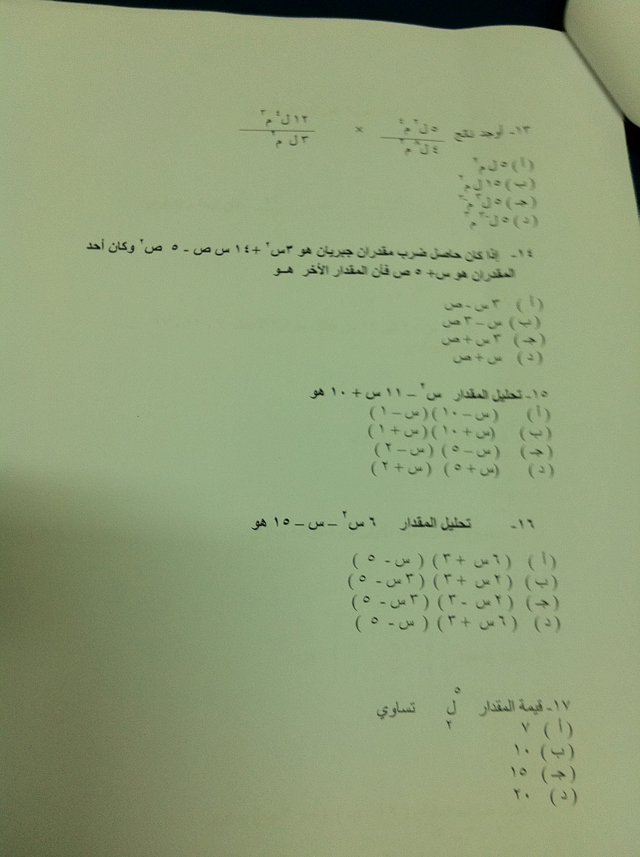 ١٣- أوجد ناتج ٥ل٢ م٤ / ٤ل٨ م٢ × ١٢ل٤ م٣ / ٣ل م٢
(أ) ٥ ل م٢
(ب) ١٥ ل م٢
(جـ) ٥ ل
(د) ٥ ل-٣ م٣
١٤- إذا كان حاصل ضرب مقدران جبريان هو ٣س٢ + ١٤ س ص - ٥ ص٢ وكان أحد
المقدران هو س + ٥ ص فأن المقدار الآخر هــو
(أ) ٣ س - ص
(ب) س – ٣ ص
(جـ) ٣ س + ص
(د) س + ص
١٥- تحليل المقدار س٢ – ١١ س + ١٠ هو
(أ) (س – ١٠) (س – ١)
(ب) (س + ١٠) (س + ١)
(جـ) (س – ٥) (س – ٢)
(د) (س + ٥) (س + ٢)
١٦- تحليل المقدار ٦ س٢ – س – ١٥ هو
(أ) (٦ س + ٣) (س - ٥)
(ب) (٢ س + ٣) (٣ س - ٥)
(جـ) (٢ س - ٣) (٣ س - ٥)
(د) (٦ س + ٣) (س - ٥)
١٧- قيمة المقدار ٥ل٢ تساوي
(أ) ٧
(ب) ١٠
(جـ) ١٥
(د) ٢٠